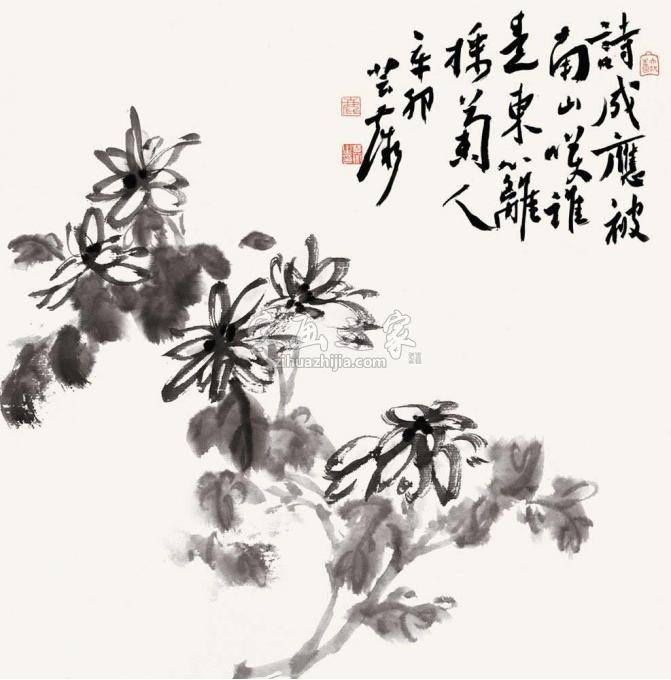 詩成應被
南山嘆誰
是東籬
採菊人
辛卯
字画之家
zihuazhijia.com